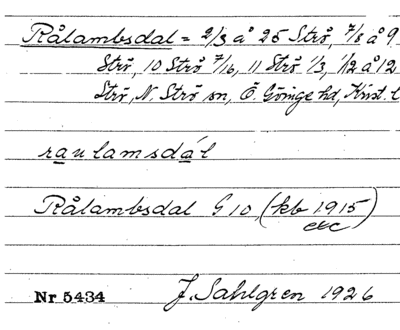 Rålambsdal = 2/3 å 25 Strö, 7/8 å 9
Strö, 10 Strö 7/16, 11 Strö 1/3, 1/2 å 12
Strö, N. Strö sn, Ö. Göinge hd, Krist. l
raulamsdál
Rålambsdal G 10, (kb 1915)
etc
Nr 5434 J. Sahlgren 1926